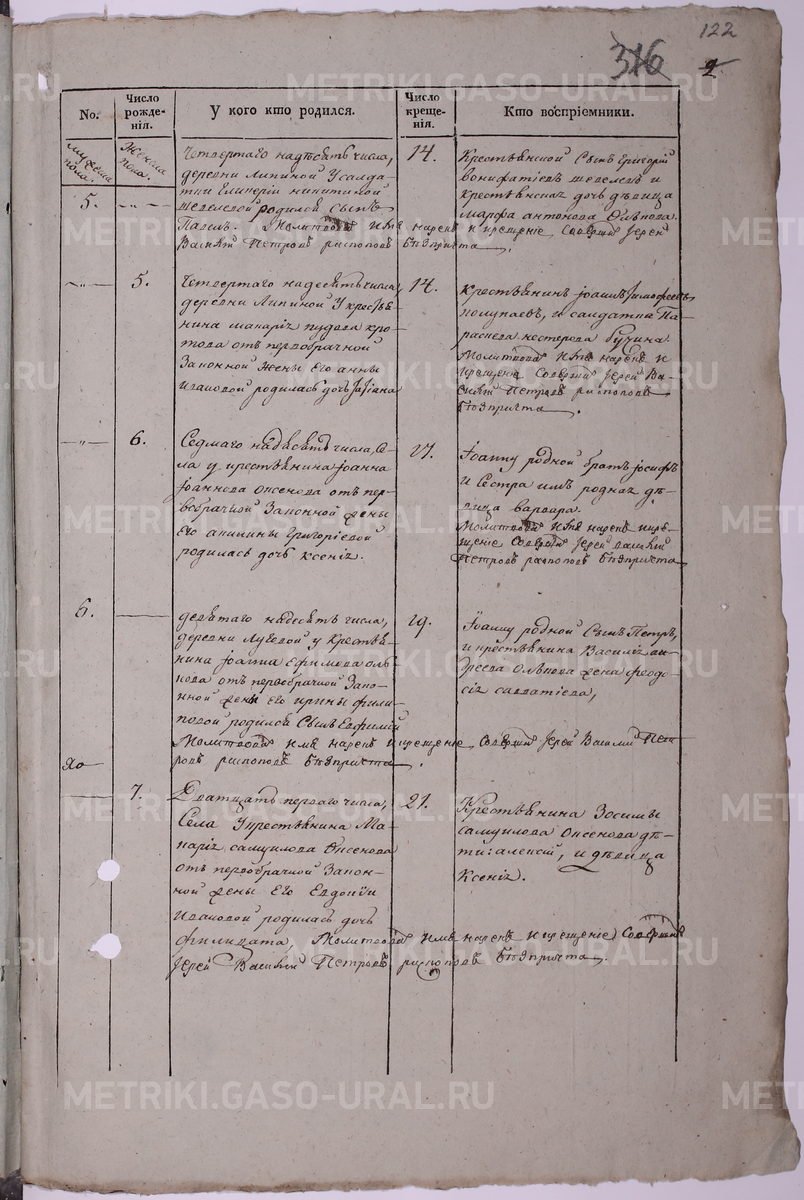 122
316
2
No.
Число рожде-
нія.
У кого кто родился.
Число креще-
нія.
Кто воспріемники.
мужеска пола.
Женска пола.
5. — „ —
Четвертаго надѣсять числа,
деревни Липиной Усолдат-
тки Никитиной
родился сынъ
Павелъ. Молитвовалъ имя нарекъ и крещеніе Совершил Іерей
Василій Петровъ распоповъ безпричта.
14.
Крестьянской сынъ Григорій
вонифатіевъ шевелевъ и
крестьянская дочь дѣвица
марфа антонова
— „ — 5.
Четвертаго надесять числа,
деревни Липиной У крестья-
нина макарія пудова кро-
това отъ первобрачной
Законной жены его анны
ивановой родилась дочь Татіана
14.
крестьянинъ іоаннъ Тимофеевъ
полупаевъ, и салдатка Па-
раскева нестерова
Молитвовалъ имя нарекъ и
крещеніе Совершил Іерей Ва-
силій Петровъ распоповъ
безпричта.
— „ — 6.
Седмаго надесять числа, Се-
ла у крестьянина іоанна
іоаннова Оксенова отъ пер-
вобрачной Законной жены
Его акилины Григоріевой
родилась дочь Ксенія.
17.
Іоанну родной братъ іосифъ
и Сестра имъ родная дѣ-
вица варвара.
Молитвовалъ имя нарекъ икре-
щеніе Совершил Іерей василій
Петровъ распоповъ безпричта
6. ——
девятаго надесять числа,
деревни Луговой у крестья-
нина іоанна Ефимова
отъ первобрачной Зако-
нной жены Его ирины фили-
повой родился Сынъ Евфимій
Молитвовалъ имя нарекъ икрещеніе Совершил Іерей Василій Пет-
ровъ распоповъ безпричта.
19.
Іоанну родной Сынъ Петръ,
и крестьянина Василія ан-
дреева жена феодо-
сія савватіева,
—— 7.
Дватцать перваго числа,
Села Укрестьянина Ма-
карія самуилова Оксенова
отъ первобрачной Закон-
ной жены Его Евдокіи
ивановой родилась дочь
филицата, Молитвовалъ имя нарекъ икрещеніе Совершил
Іерей Василій Петровъ распоповъ безпричта.
21.
Крестьянина Зосимы
самуилова Оксенова дѣ-
ти: алексій, и дѣвица
Ксенія.
METRIKI.GASO-URAL.RU